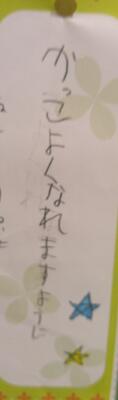 かっこよくなれますように